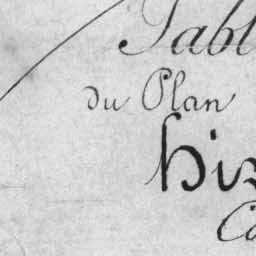 Tabl
du Plan
his
Co